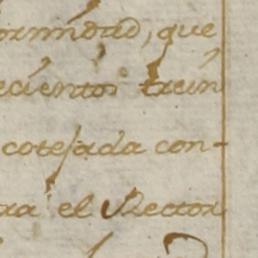 ormidad, que
ecientos trein
cotejada con-
ra el Rector